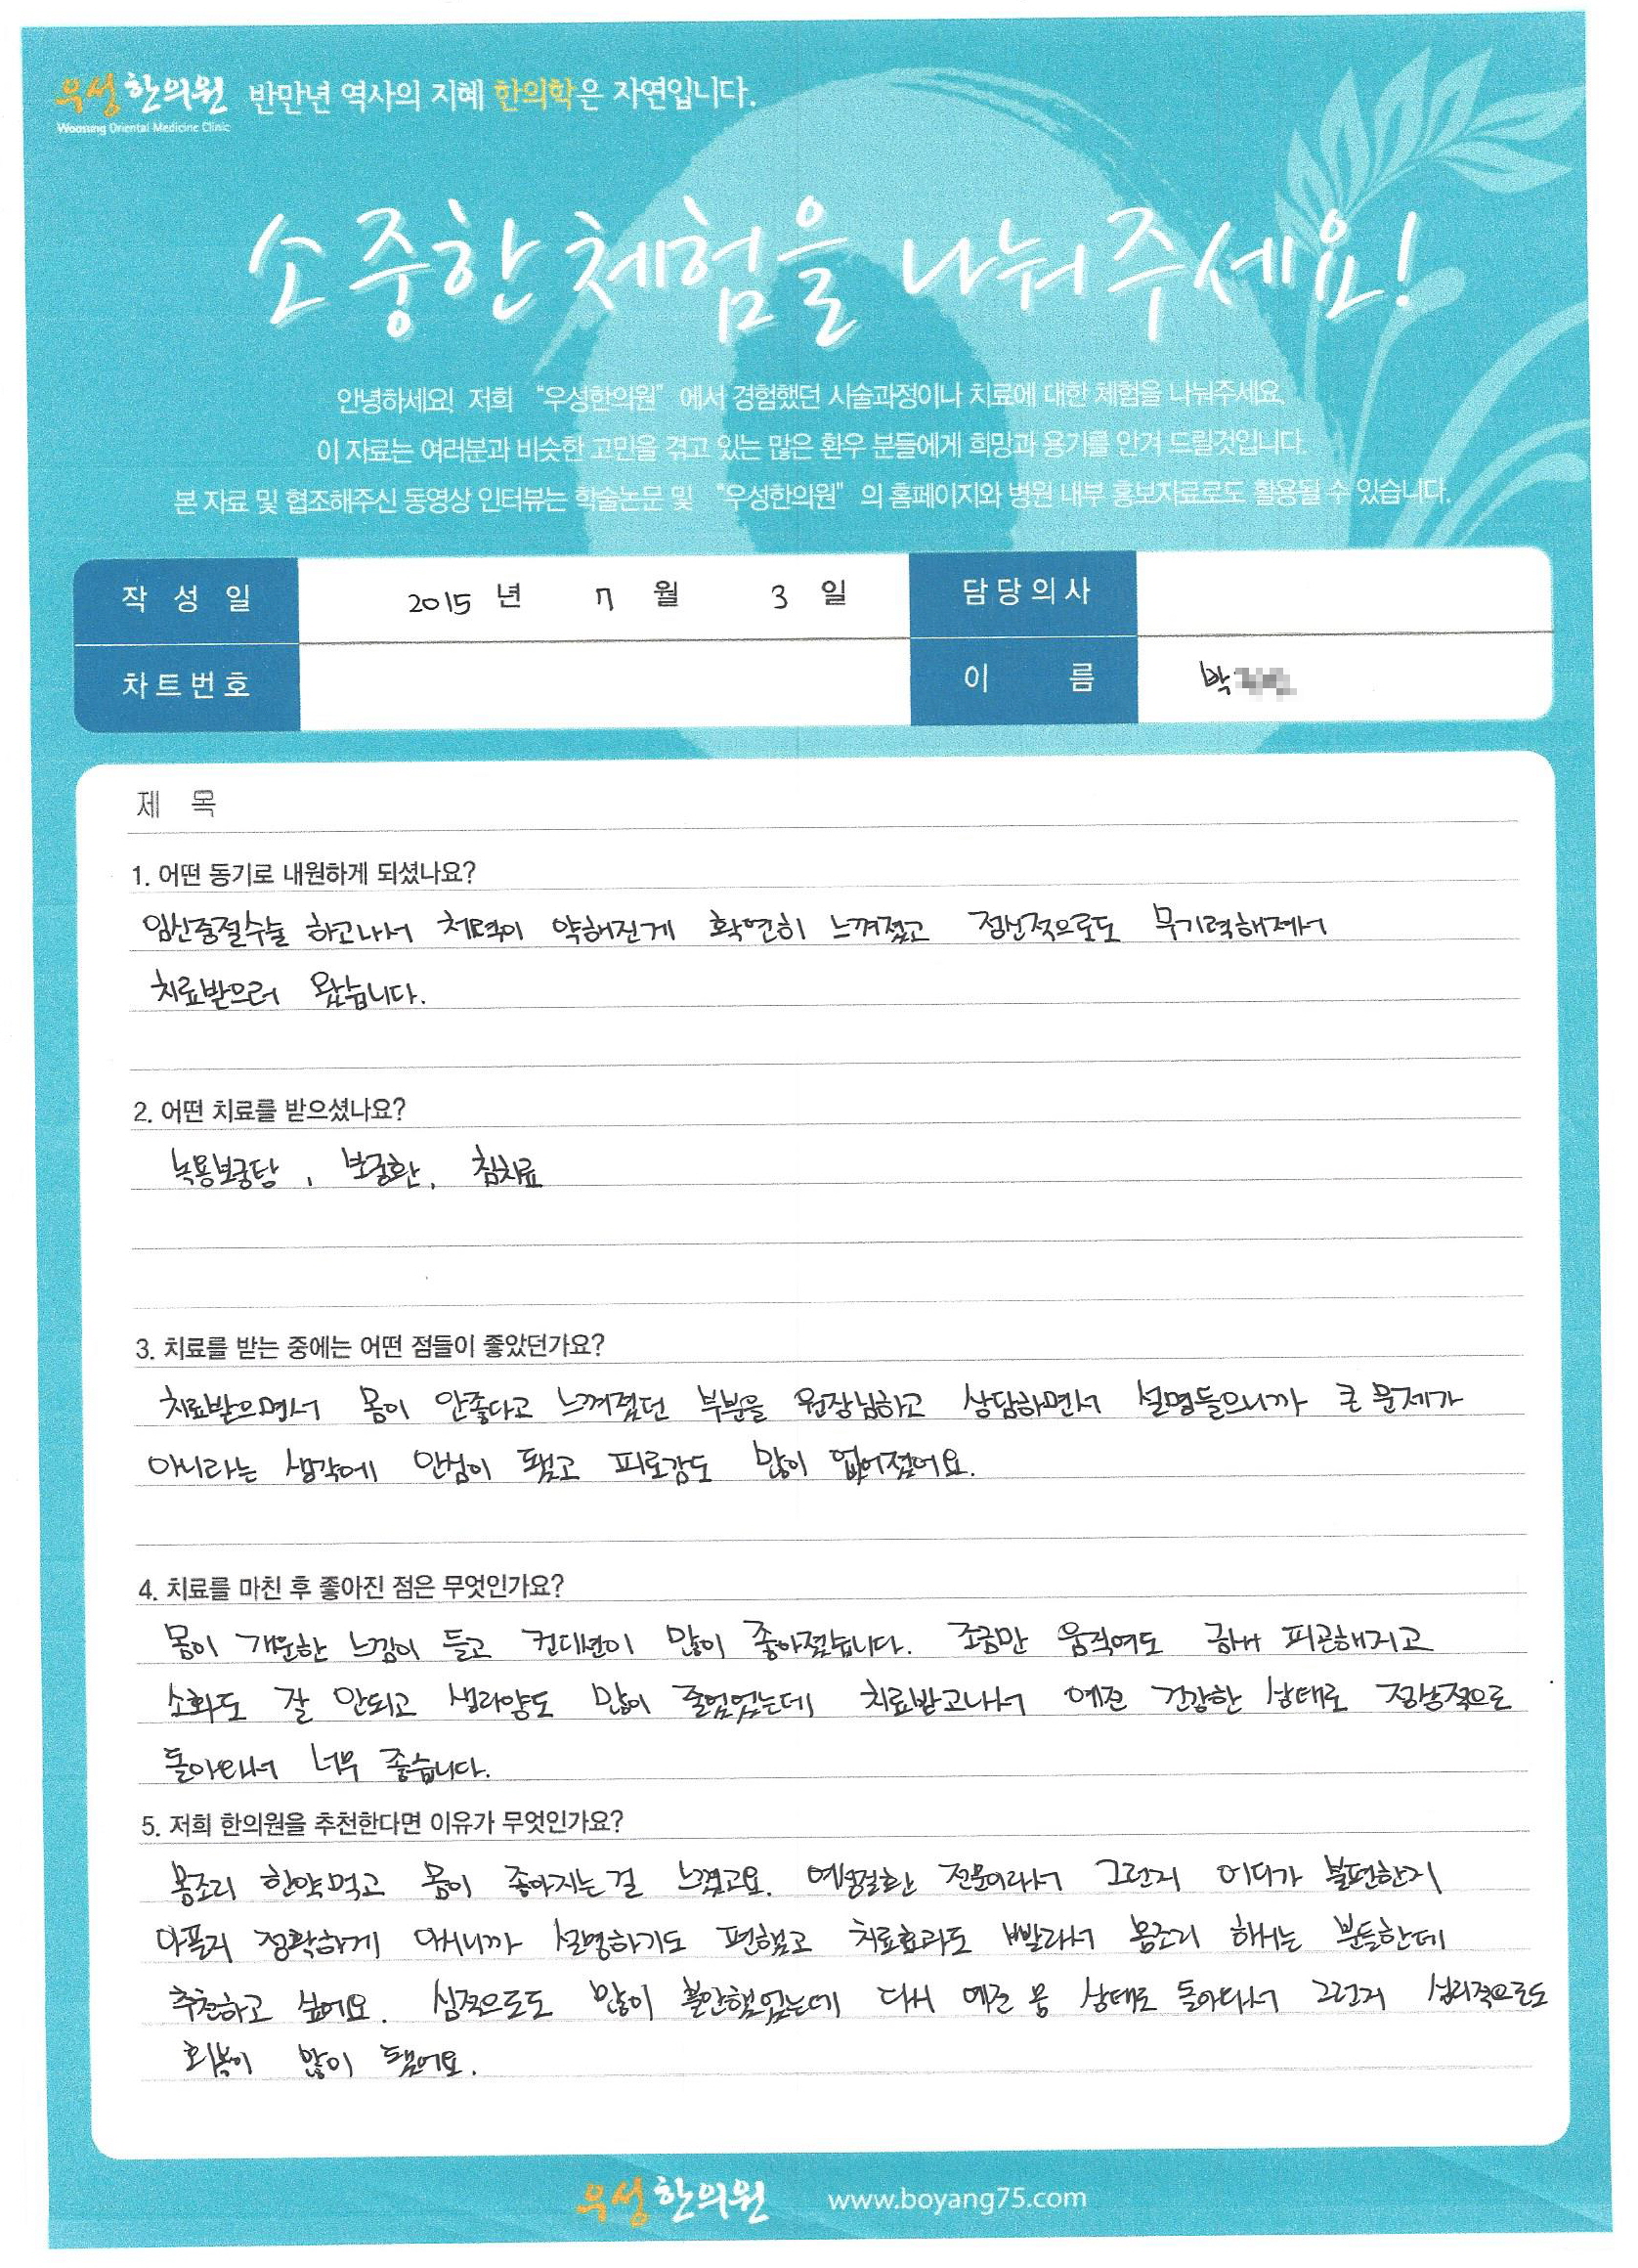 우성한의원 반만년 역사의 지혜 한의학은 자연입니다.
Woosung Oriental Medicine Clinic
소중한 체험을 나눠주세요!
안녕하세요! 저희 “우성한의원”에서 경험했던 시술과정이나 치료에 대한 체험을 나눠주세요.
이 자료는 여러분과 비슷한 고민을 겪고 있는 많은 환우 분들에게 희망과 용기를 안겨 드릴것입니다.
본 자료 및 협조해주신 동영상 인터뷰는 학술논문 및 “우성한의원”의 홈페이지와 병원 내부 홍보자료로도 활용될 수 있습니다.
작성일 2015 년 7 월 3 일 담당의사
차트번호 이 름 박
제 목
1. 어떤 동기로 내원하게 되셨나요?
임신중절수술 하고나서 체력이 약해진게 확연히 느껴졌고 정신적으로도 무기력해져서
치료받으러 왔습니다.
2. 어떤 치료를 받으셨나요?
녹용보궁탕, 보궁환, 침치료
3. 치료를 받는 중에는 어떤 점들이 좋았던가요?
치료받으면서 몸이 안좋다고 느껴졌던 부분을 원장님하고 상담하면서 설명들으니까 큰 문제가
아니라는 생각에 안심이 됐고 피로감도 많이 없어졌어요.
4. 치료를 마친 후 좋아진 점은 무엇인가요?
몸이 개운한 느낌이 들고 컨디션이 많이 좋아졌습니다. 조금만 움직여도 금새 피곤해지고
소화도 잘 안되고 생리양도 많이 줄었었는데 치료받고나서 예전 건강한 상태로 정상적으로
돌아와서 너무 좋습니다.
5. 저희 한의원을 추천한다면 이유가 무엇인가요?
몸조리 한약먹고 몸이 좋아지는걸 느꼈고요. 여성질환 전문이라서 그런지 어디가 불편한지
아픈지 정확하게 아시니까 설명하기도 편했고 치료효과도 빨라서 몸조리 하시는 분들한테
추천하고 싶어요. 심적으로도 많이 불안했었는데 다시 예전 몸 상태로 돌아와서 그런지 심리적으로도
회복이 많이 됐어요.
우성한의원 www.boyang75.com